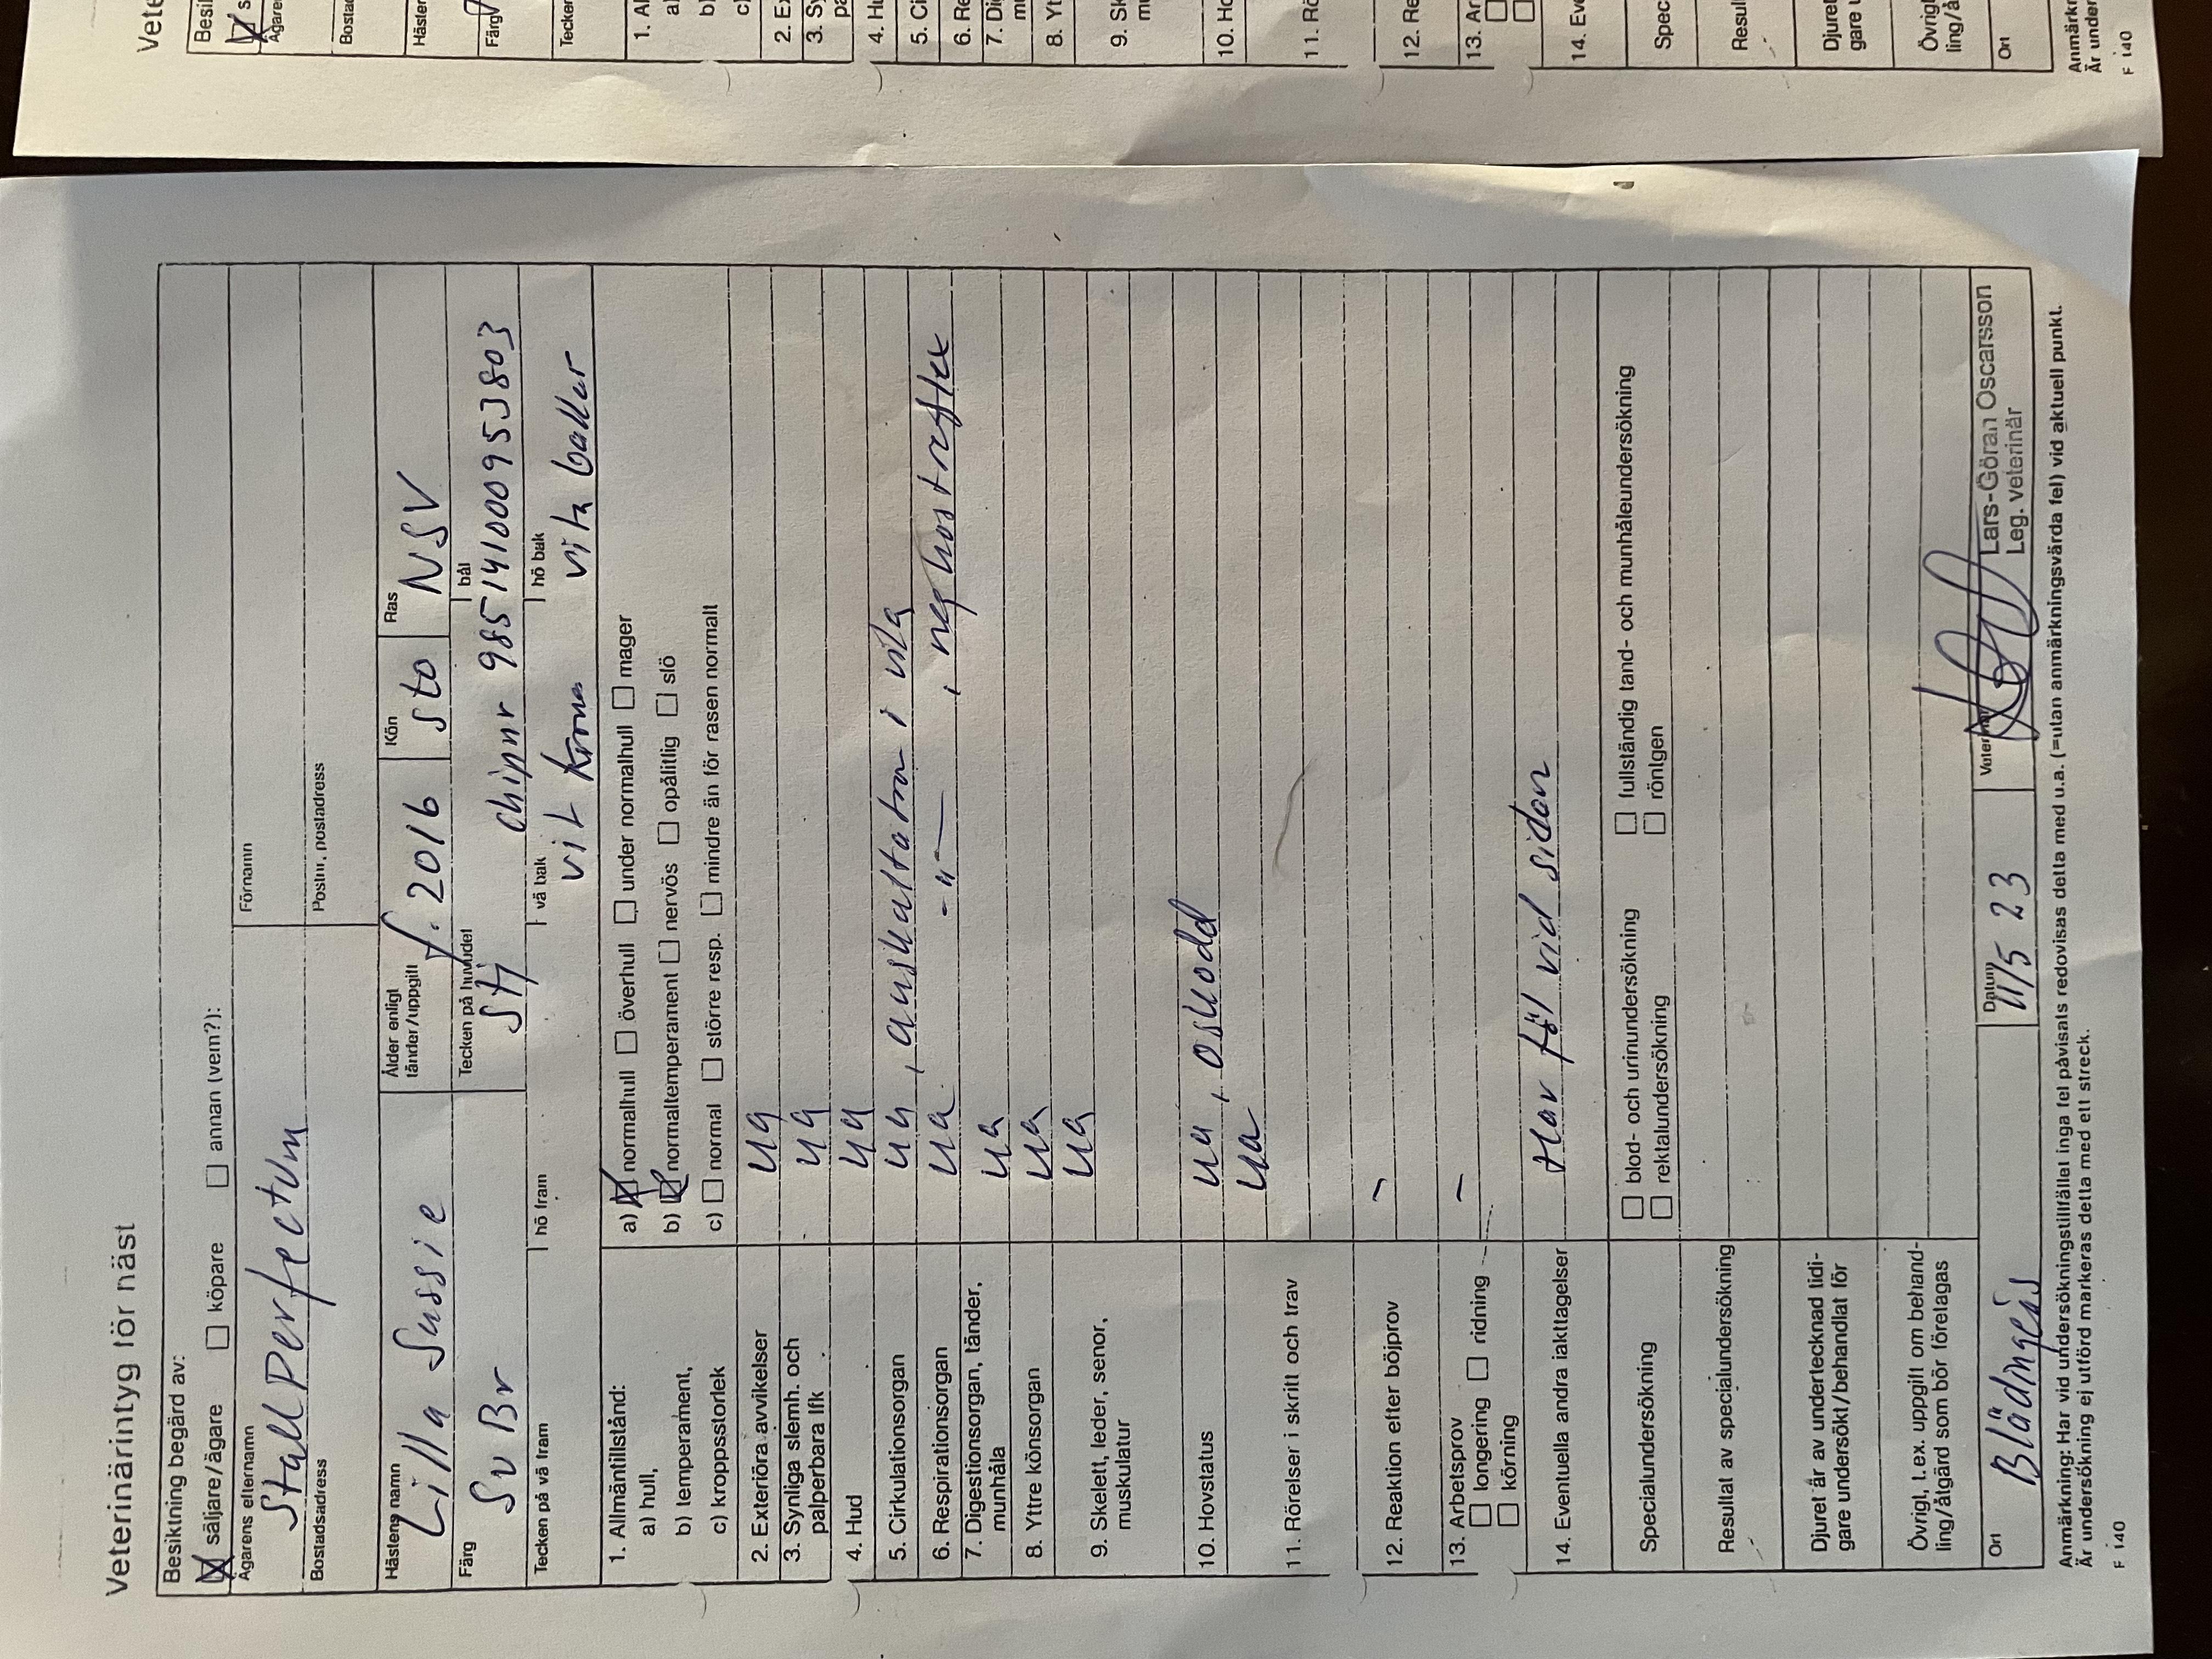 Veterinärintyg för häst
Besiktning begärd av:
säljare/ägare köpare annan (vem?):
Ägarens efternamn Förnamn
Stall Perfectum
Bostadsadress Postnr, postadress
Hästens namn Ålder enligt tänder/uppgift Kön Ras
Lilla Sussie f. 2016 sto NSV
Färg Tecken på huvudet bål
Sv Br Stj chipnr 985141000953803
Tecken på vä fram hö fram vä bak hö bak
vit krona vita ballar
1. Allmäntillstånd:
a) hull, a) normalhull överhull under normalhull mager
b) temperament, b) normaltemperament nervös opålitlig slö
c) kroppsstorlek c) normal större resp. mindre än för rasen normalt
2. Exteriöra avvikelser ua
3. Synliga slemh. och palperbara lfk ua
4. Hud ua
5. Cirkulationsorgan ua, auskultation i vila
6. Respirationsorgan ua -"-, neg hostreflex
7. Digestionsorgan, tänder, munhåla ua
8. Yttre könsorgan ua
9. Skelett, leder, senor, muskulatur ua
10. Hovstatus ua, oskodd
11. Rörelser i skritt och trav ua
12. Reaktion efter böjprov -
13. Arbetsprov -
longering ridning
körning
14. Eventuella andra iakttagelser Har föl vid sidan
Specialundersökning blod- och urinundersökning fullständig tand- och munhåleundersökning
rektalundersökning röntgen
Resultat av specialundersökning
Djuret är av undertecknad tidi-
gare undersökt/behandlat för
Övrigt, t.ex. uppgift om behand-
ling/åtgärd som bör företagas
Ort Datum
Blädingeås 11/5 23
Lars-Göran Oscarsson
Leg. veterinär
Anmärkning: Har vid undersökningstillfället inga fel påvisats redovisas detta med u.a. (=utan anmärkningsvärda fel) vid aktuell punkt.
Är undersökning ej utförd markeras detta med ett streck.
F 140